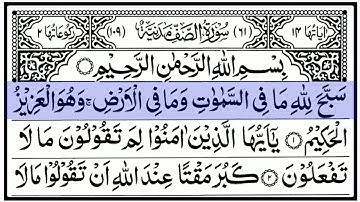 اٰيَاتُهَا ١٤ (٦١) سُوْرَةُ الصَّفِّ مَدَنِيَّةٌ (١٠٩) رُكُوْعَاتُهَا ٢
بِسْمِ اللّٰهِ الرَّحْمٰنِ الرَّحِيْمِ
سَبَّحَ لِلّٰهِ مَا فِى السَّمٰوٰتِ وَمَا فِى الْاَرْضِ ۚ وَهُوَ الْعَزِيْزُ
الْحَكِيْمُ ۝١ يٰۤاَيُّهَا الَّذِيْنَ اٰمَنُوْا لِمَ تَقُوْلُوْنَ مَا لَا
تَفْعَلُوْنَ ۝٢ كَبُرَ مَقْتًا عِنْدَ اللّٰهِ اَنْ تَقُوْلُوْا مَا لَا